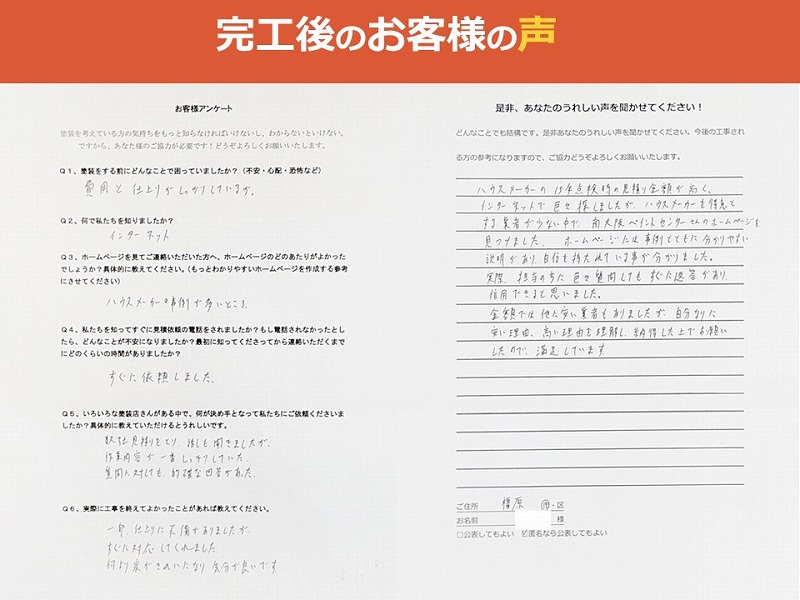 完工後のお客様の声
お客様アンケート
塗装を考えている方の気持ちをもっと知らなければいけないし、わからないといけない。
ですから、あなた様のご協力が必要です！どうぞよろしくお願いいたします。
Q1、塗装をする前にどんなことで困っていましたか？（不安・心配・恐怖など）
費用と仕上りがしっかりしているか。
Q2、何で私たちを知りましたか？
インターネット
Q3、ホームページを見てご連絡いただいた方へ、ホームページのどのあたりがよかった
でしょうか？具体的に教えてください。（もっとわかりやすいホームページを作成する参考
にさせてください）
ハウスメーカーの事例が多いところ。
Q4、私たちを知ってすぐに見積依頼の電話をされましたか？もし電話されなかったとし
たら、どんなことが不安になりましたか？最初に知ってくださってから連絡いただくまで
にどのくらいの時間がありましたか？
すぐに依頼しました。
Q5、いろいろな塗装店さんがある中で、何が決め手となって私たちにご依頼くださいま
したか？具体的に教えていただけるとうれしいです。
数社見積りをとり、話しも聞きましたが、
作業内容が一番しっかりしていた。
質問に対しても、的確な回答があった。
Q6、実際に工事を終えてよかったことがあれば教えてください。
一部、仕上りに不備がありましたが、
すぐに対応してくれました。
何より家がきれいになり気分が良いです
是非、あなたのうれしい声を聞かせてください！
どんなことでも結構です。是非あなたのうれしい声を聞かせてください。今後の工事され
る方の参考になりますので、ご協力どうぞよろしくお願いいたします。
ハウスメーカーの15年点検時の見積り金額が高く、
インターネットで色々探しましたが、ハウスメーカーを得意と
する業者が少ない中で、南大阪ペイントセンターさんのホームページを
見つけました。ホームページには事例とともに分かりやすい
説明があり、自信を持たれている事が分かりました。
実際、担当の方に色々質問してもすぐに返答があり、
信用できると思いました。
金額では他に安い業者もありましたが、自分なりに
安い理由、高い理由を理解し、納得した上でお願い
したので、満足しています。
ご住所 橿原 市・区
お名前 様
□公表してもよい ☑匿名なら公表してもよい